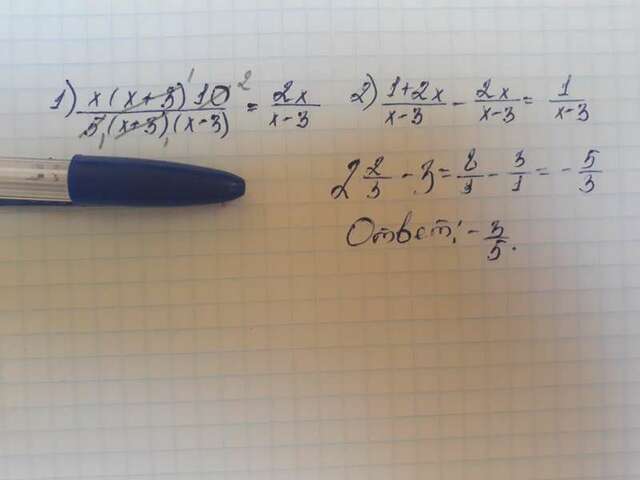 1) x(x+3) 10 / 5(x+3)(x-3) = 2x / x-3
2) 1+2x / x-3 - 2x / x-3 = 1 / x-3
2 2/3 - 3 = 8/3 - 3/1 = - 5/3
Ответ: - 3/5.